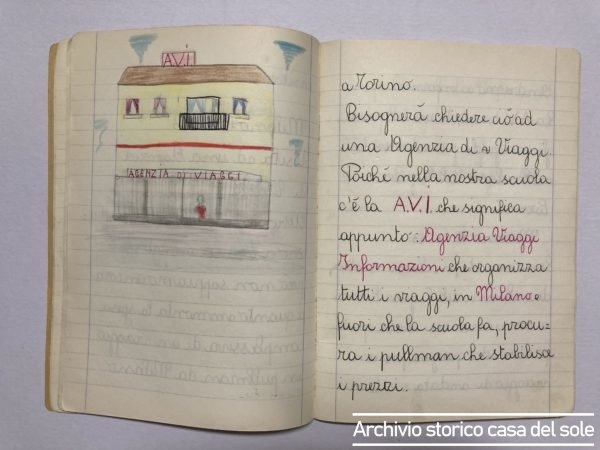 A.V.I.
AGENZIA DI VIAGGI
a Torino.
Bisognerá chiedere ció ad
una Agenzia di Viaggi.
Poiché nella nostra scuola
c'é la A.V.I. che significa
appunto: Agenzia Viaggi
Informazioni che organizza
tutti i viaggi, in Milano e
fuori che la scuola fa, procu-
ra i pullman che stabilisce
i prezzi.
Archivio storico casa del sole